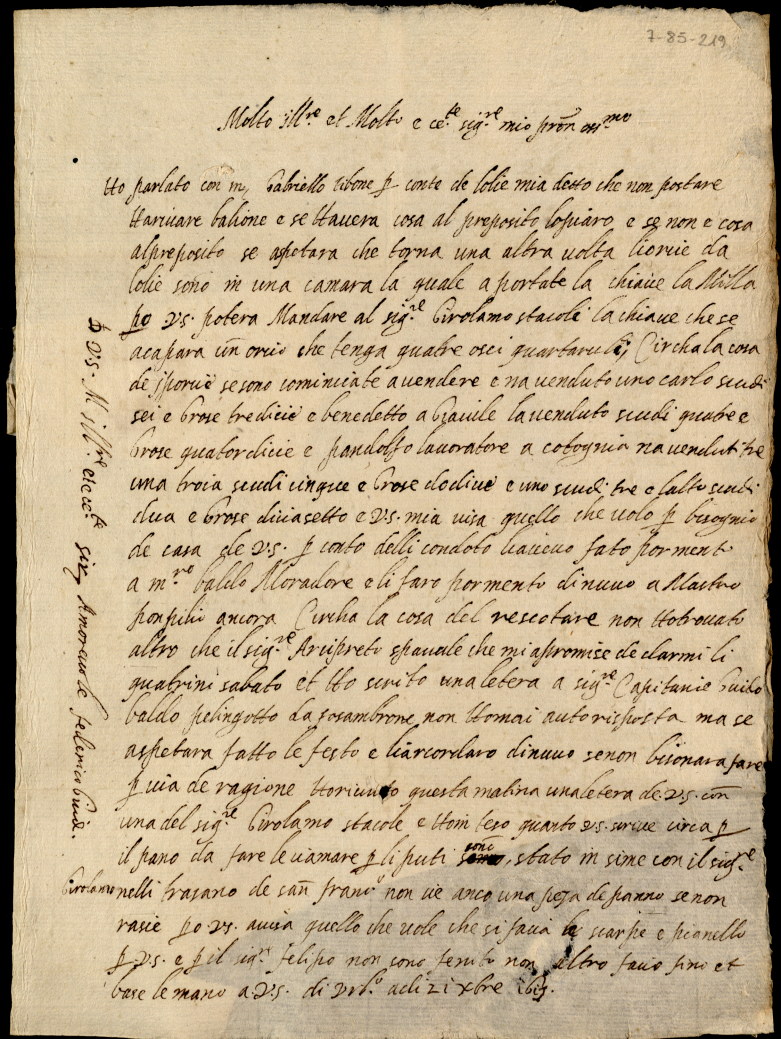 7-85-219
Molto Ill.re et Molto e ce.te sig.re mio pron oss.mo
Ho parlato con m, Gabriello Vbone p conto de lolie mia detto che non postare
Harivare balione e se Havera cosa al preposito lopiaro e se non e cosa
alpreposito se aspetara che torna una altra volta liorvie da
lolie sono in una camara la quale a portate la chiave la Milla
po v.s. potera Mandare al sig.re Girolamo stacoli la chiave che se
acapara un orcio che tenga quatre osci quartaruli, Circha la cosa
de sono cominciate avendere e na venduto uno carlo scudi
sei e Grose tredicie e benedetto a Gavile la venduto scudi quatre e
Grose quatordicie e pandolfo lavoratore a cotognia na venduti tre
una troia scudi cingue e Grose dodicie e uno scudi tre e laltro scudi
dua e Grose diciasetto e v.s. mia visa quello che volo p bisognio
de casa de v.s. p conto delli condoto havevo fato porment
a m.ro baldo Moradore e li faro pormento dinuvo a Mastro
ponpilio ancora Circha la cosa del rescotare non Hotrovato
altro che il sig.re Arcipreto che mi apromise de darmi li
quatrini sabato et Ho scrito unaletera a sig.re Capitanie Guido
baldo pelingotto da fosambrone non Homai auto risposta ma se
aspetara fatto le festo e liarcordaro dinuvo senon bisonara fare
p via de ragione Horicivuto questa matina unaletera de v.s. con
una del sig.re Girolamo stacole e Hointeso quanto v.s. scrive circa p
il pano da fare le p li puti sono, stato in sime con il sig.re
Girolamo nelli trasano de san franc.o non vie anco una peza de panno senon
rasie po v.s. avisa quello che vole che si facia le scarpe e pianello
p v.s. e p il sig.r felipo non sono fenito non altro facio fino et
base le mano a v.s. di Vrb.o adi 21 xbre
D v.s. M ill.re et ece.te sig. Amorevole federico Guid.